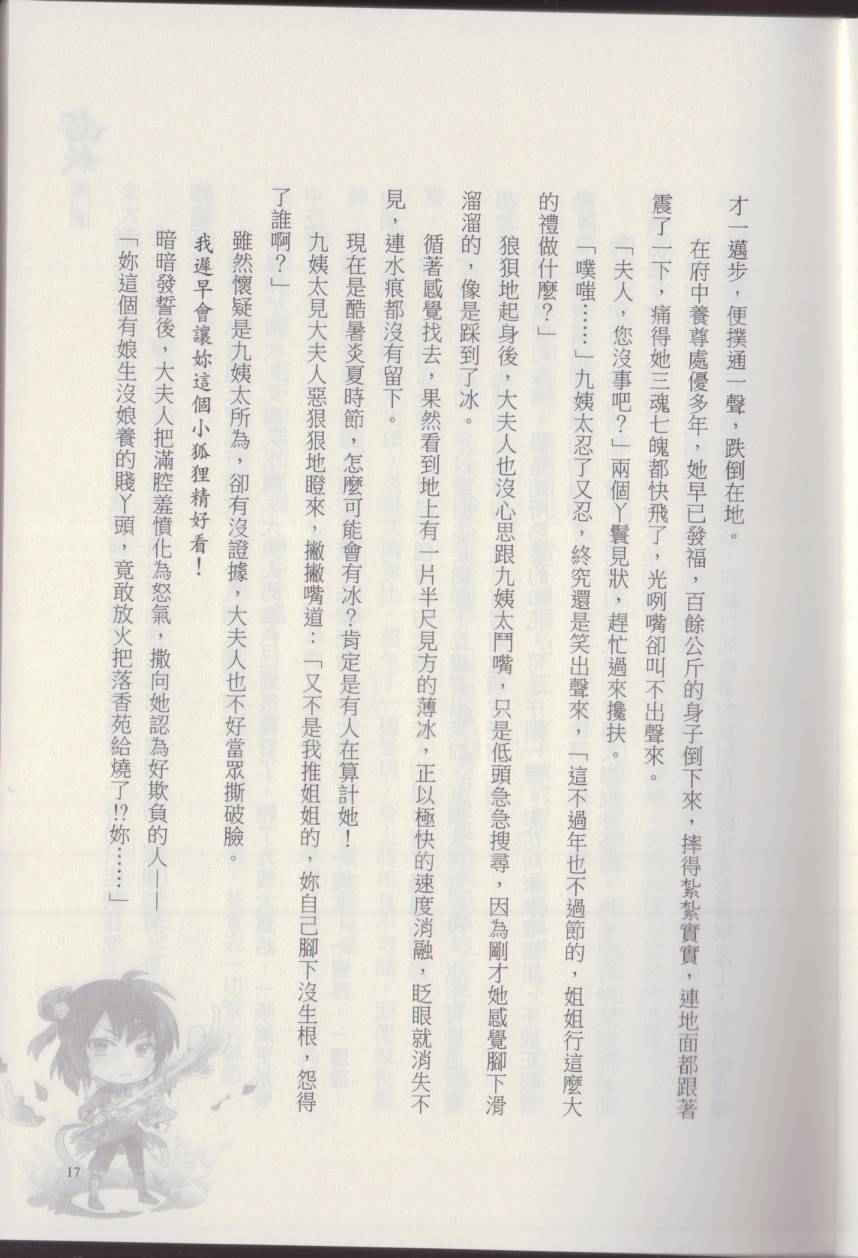 才一邁步，便撲通一聲，跌倒在地。
在府中養尊處優多年，她早已發福，百餘公斤的身子倒下來，摔得紮紮實實，連地面都跟著
震了一下，痛得她三魂七魄都快飛了，光咧嘴卻叫不出聲來。
「夫人，您沒事吧？」兩個丫鬟見狀，趕忙過來攙扶。
「噗嗤……」九姨太忍了又忍，終究還是笑出聲來，「這不過年也不過節的，姐姐行這麼大
的禮做什麼？」
狼狽地起身後，大夫人也沒心思跟九姨太鬥嘴，只是低頭急急搜尋，因為剛才她感覺腳下滑
溜溜的，像是踩到了冰。
循著感覺找去，果然看到地上有一片半尺見方的薄冰，正以極快的速度消融，眨眼就消失不
見，連水痕都沒有留下。
現在是酷暑炎夏時節，怎麼可能會有冰？肯定是有人在算計她！
九姨太見大夫人惡狠狠地瞪來，撇撇嘴道：「又不是我推姐姐的，妳自己腳下沒生根，怨得
了誰啊？」
雖然懷疑是九姨太所為，卻有沒證據，大夫人也不好當眾撕破臉。
我遲早會讓妳這個小狐狸精好看！
暗暗發誓後，大夫人把滿腔羞憤化為怒氣，撒向她認為好欺負的人——
「妳這個有娘生沒娘養的賤丫頭，竟敢放火把落香苑給燒了!?妳……」
17